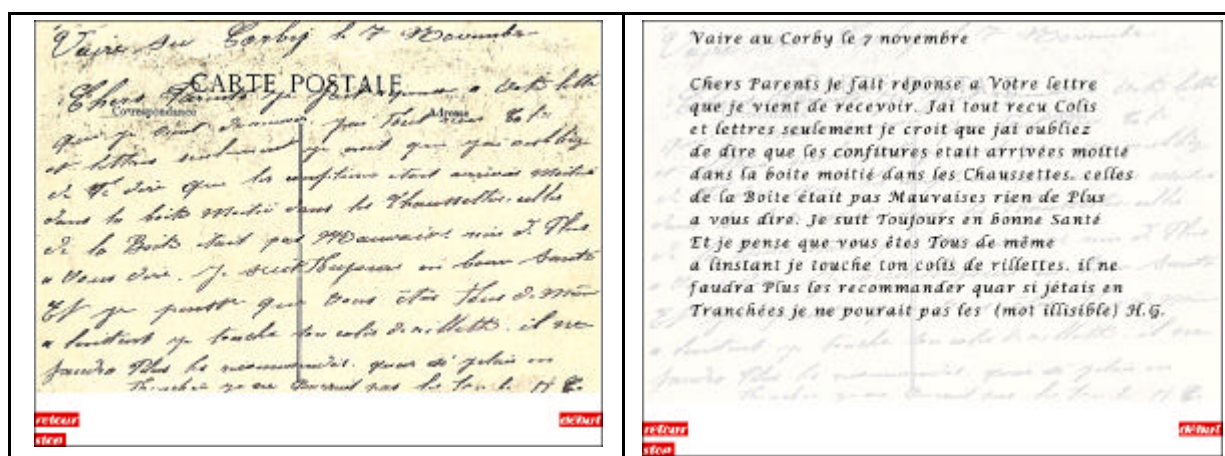 Vaire au Corby le 7 Novembre
CARTE POSTALE
Chers Parents je fait réponse a Votre lettre
Correspondance
Adresse
que je vient de recevoir jai Tout recu Colis
et lettres seulement je croit que jai oubliez
de dire que les confitures etait arrivées moitié
dans la boite moitié dans les Chaussettes. celles
de la Boite était pas Mauvaises rien de Plus
a Vous dire. Je suit Toujours en bonne Santé
Et je pense que Vous êtes Tous de même
a linstant je touche ton colis de rillettes. il ne
faudra Plus les recommander. quar si jétais en
Tranchées je ne pourait pas les H G.
retour
début
stop
Vaire au Corby le 7 novembre
Chers Parents je fait réponse a Votre lettre
que je vient de recevoir. Jai tout recu Colis
et lettres seulement je croit que jai oubliez
de dire que les confitures etait arrivées moitié
dans la boite moitié dans les Chaussettes. celles
de la Boite était pas Mauvaises rien de Plus
a vous dire. Je suit Toujours en bonne Santé
Et je pense que vous êtes Tous de même
a linstant je touche ton colis de rillettes. il ne
faudra Plus les recommander quar si jétais en
Tranchées je ne pourait pas les (mot illisible) H.G.
retour
début
stop